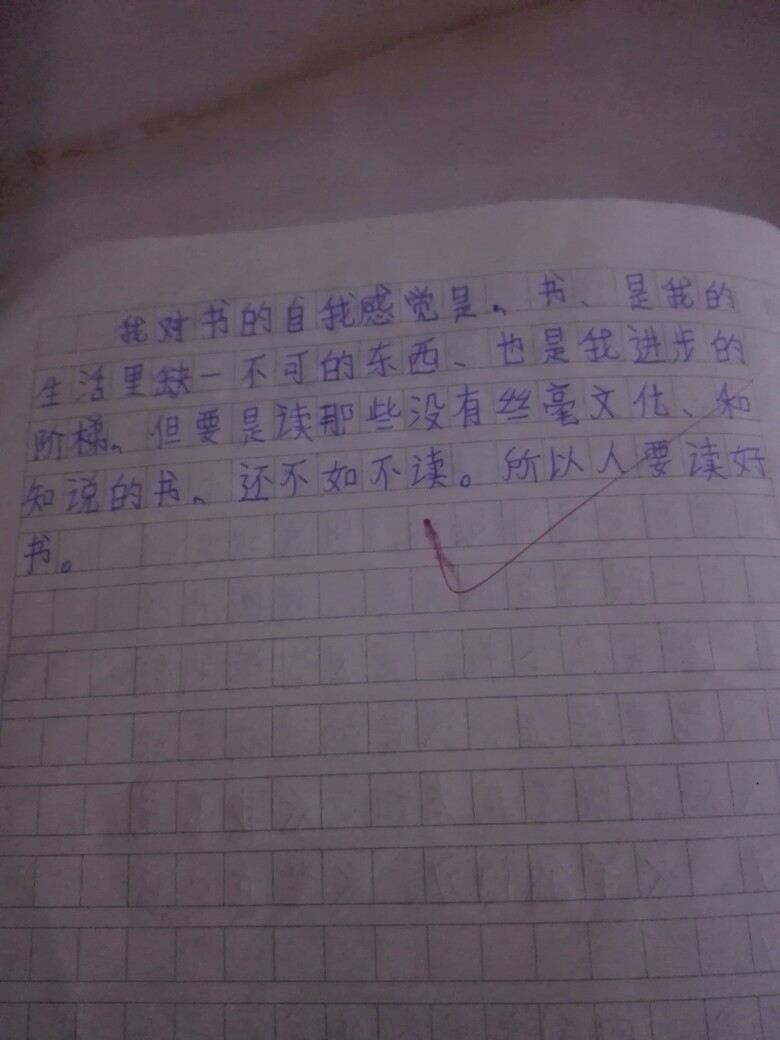 我对书的自我感觉是、书、是我的
生活里缺一不可的东西、也是我进步的
阶梯、但要是读那些没有丝毫文化、和
知说的书、还不如不读。所以人要读好
书。